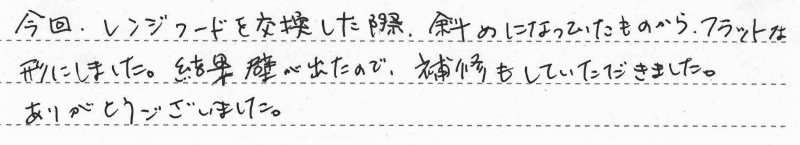 今回、レンジフードを交換した際、斜めになっていたものから、フラットな
形にしました。結果壁が出たので、補修もしていただきました。
ありがとうございました。